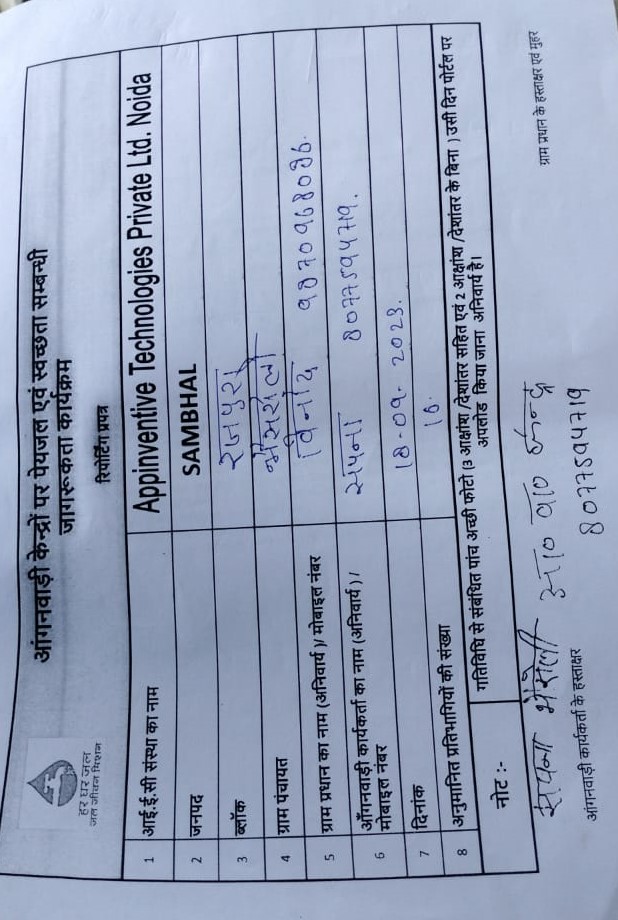 हर घर जल
जल जीवन मिशन
आंगनवाड़ी केन्द्रों पर पेयजल एवं स्वच्छता सम्बन्धी
जागरूकता कार्यक्रम
रिपोर्टिंग प्रपत्र
1 आई.ई.सी संस्था का नाम Appinventive Technologies Private Ltd. Noida
2 जनपद SAMBHAL
3 ब्लॉक रजपुरा
4 ग्राम पंचायत
5 ग्राम प्रधान का नाम (अनिवार्य )/ मोबाईल नंबर विनोद
6 आँगनवाड़ी कार्यकर्ता का नाम (अनिवार्य )/
मोबाईल नंबर सपना 8077594719.
7 दिनांक 18-09-2023.
8 अनुमानित प्रतिभागियों की संख्या
नोट :- गतिविधि से संबंधित पांच अच्छी फोटो (3 आक्षांश /देशांतर सहित एवं 2 आक्षांश /देशांतर के बिना ) उसी दिन पोर्टल पर
अपलोड किया जाना अनिवार्य है।
सपना आ० वा० केन्द्र
आंगनवाड़ी कार्यकर्ता के हस्ताक्षर 8077594719
ग्राम प्रधान के हस्ताक्षर एवं मुहर